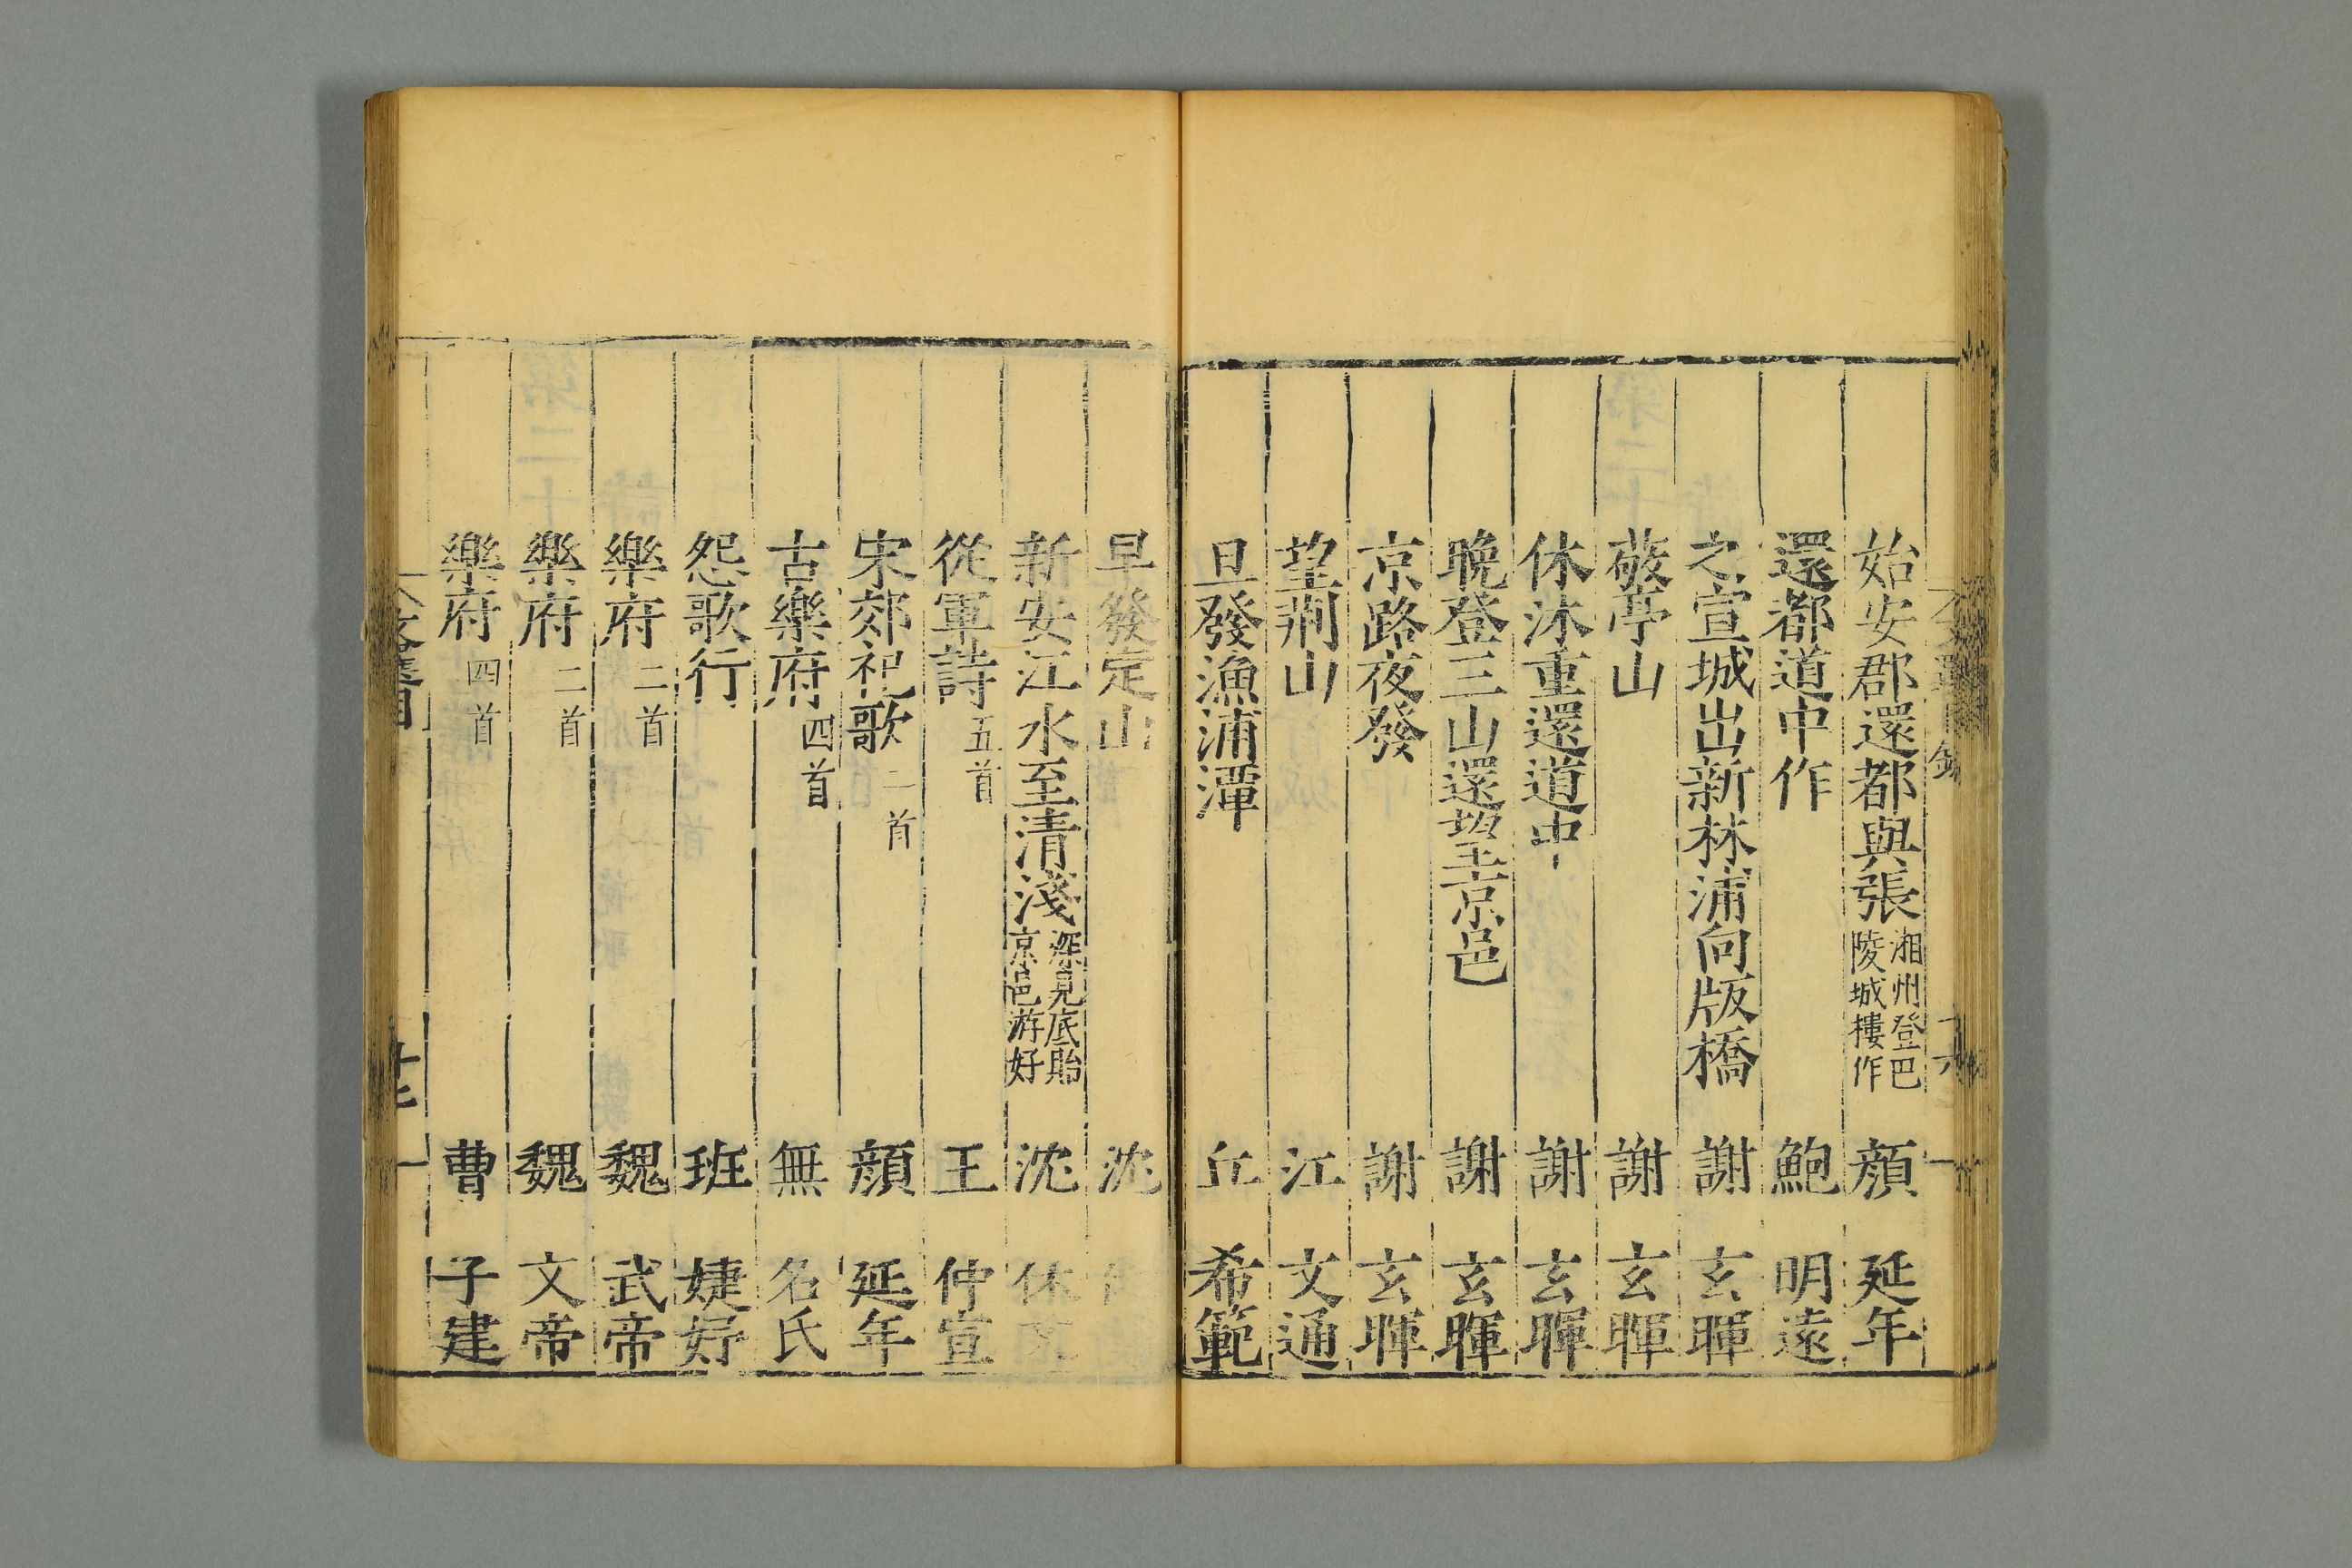 始安郡還都與張湘州登巴陵城樓作 顔延年
還都道中作 鮑明遠
之宣城出新林浦向版橋 謝玄暉
敬亭山 謝玄暉
休沐重還道中 謝玄暉
晚登三山還望京邑 謝玄暉
京路夜發 謝玄暉
望荆山 江文通
旦發漁浦潭 丘希範
早發定山 沈
新安江水至清淺深見底貽京邑游好 沈休文
從軍詩五首 王仲宣
宋郊祀歌二首 顔延年
古樂府四首 無名氏
怨歌行 班婕妤
樂府二首 魏武帝
樂府二首 魏文帝
樂府四首 曹子建